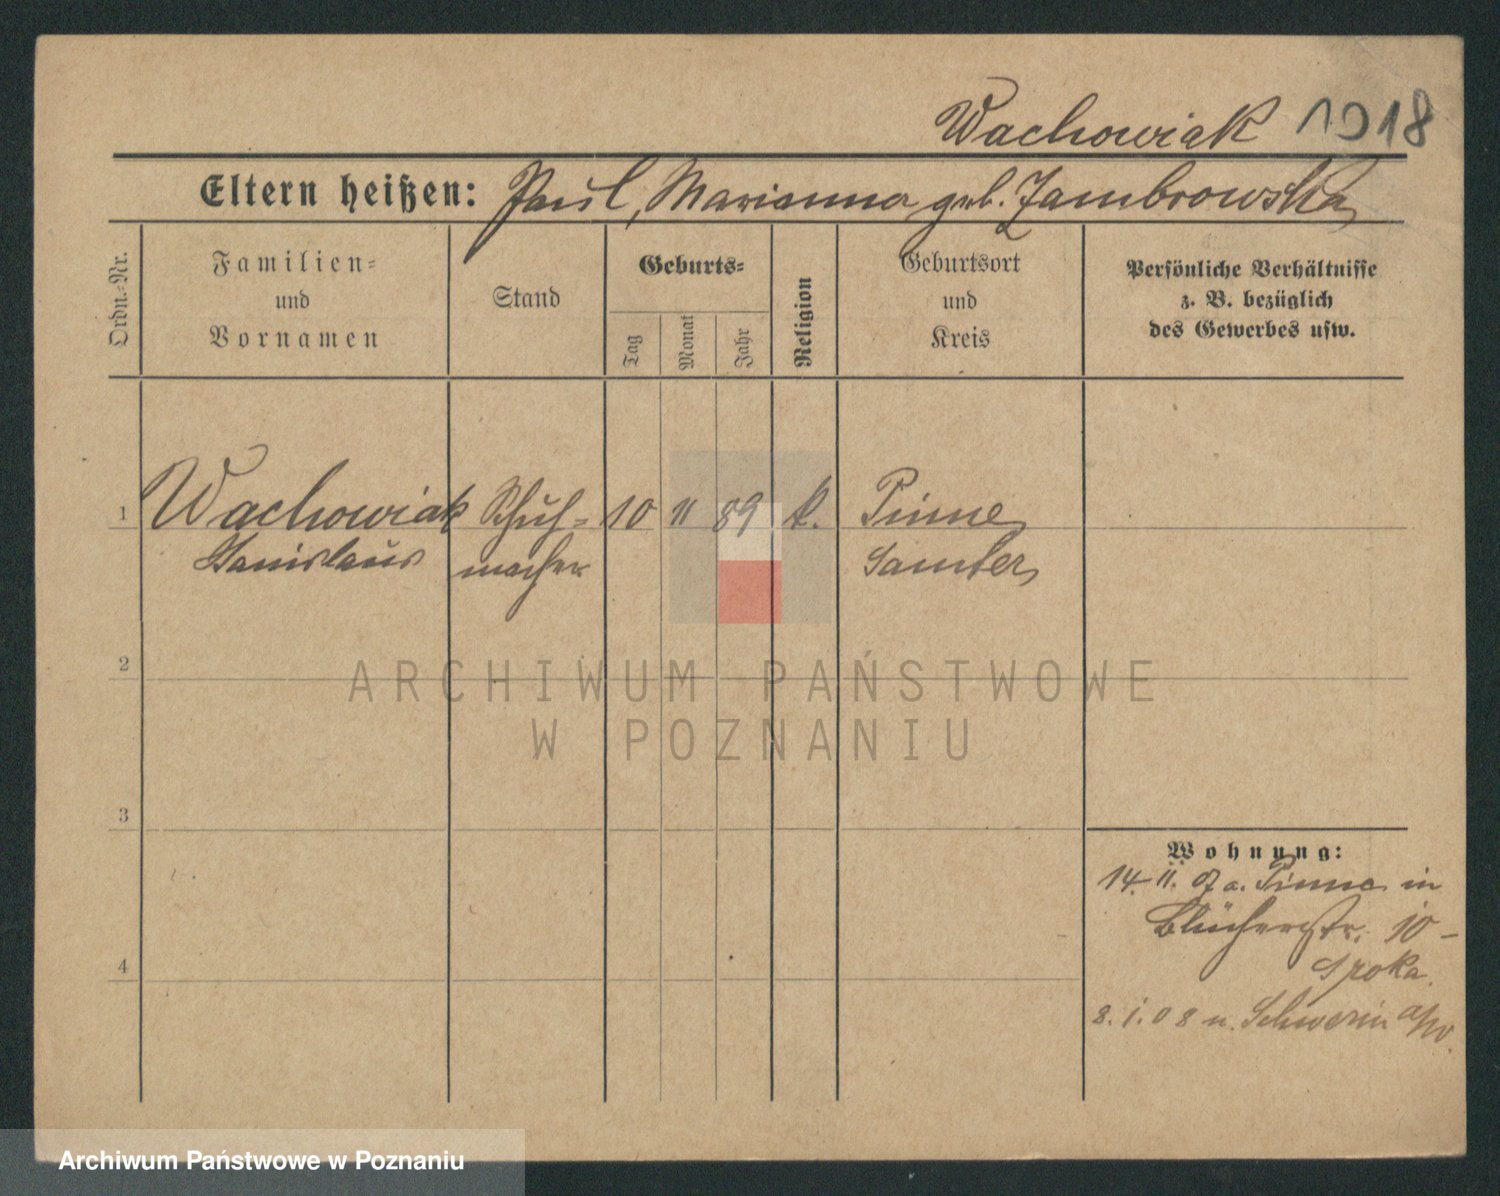 Wachowiak 1918
Eltern heißen: Paul, Marianna geb. Zambrowska
Ordn.-Nr.
Familien-
und
Vornamen
Stand
Geburts-
Tag
Monat
Jahr
Religion
Geburtsort
und
Kreis
Persönliche Verhältnisse
z. B. bezüglich
des Gewerbes usw.
1 Wachowiak Schuh- 10 11 89 k. Pinne
Stanislaus macher Samter
2
3
4
Wohnung:
14. 11. 07 a. Pinne in
Blücherstr. 10 -
Sroka.
8. 1. 08 n. Schwerin a/W.
ARCHIWUM PAŃSTWOWE
W POZNANIU
Archiwum Państwowe w Poznaniu